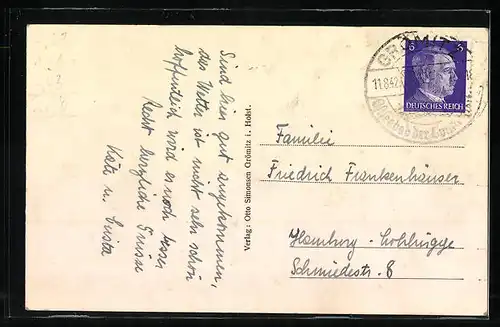 Sind hier gut angekommen,
das Wetter ist nicht sehr schön
hoffentlich wird es noch besser
Recht herzliche Grüsse
Käte u.
Verlag: Otto Simonsen Grömitz i. Holst.
GRÖMITZ
11.8.42
Ostseebad der
6 6
DEUTSCHES REICH
Familie
Friedrich Frankenhäuser
Hamburg - Lohbrügge
Schmiedestr. 8